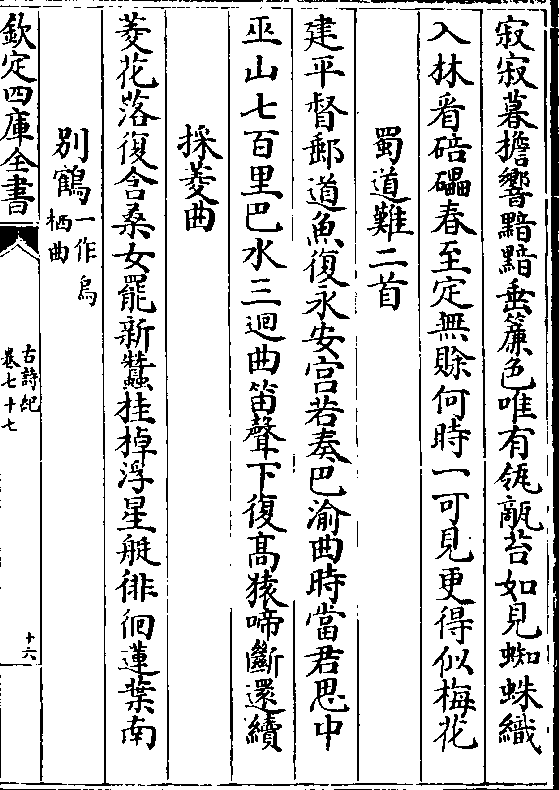 寂寂暮擔響黯黯垂簾色唯有瓴甋苔如見蜘蛛織
入林看碚礧春至定無賒何時一可見更得似梅花
蜀道難二首
建平督郵道魚復永安宫若奏巴渝曲時當君思中
巫山七百里巴水三迴曲笛聲下復髙猿啼斷還續
採菱曲
菱花落復含桑女罷新蠶桂棹浮星艇徘徊蓮葉南
别鶴一作烏栖曲
欽定四庫全書
古詩紀
卷七十七
十六